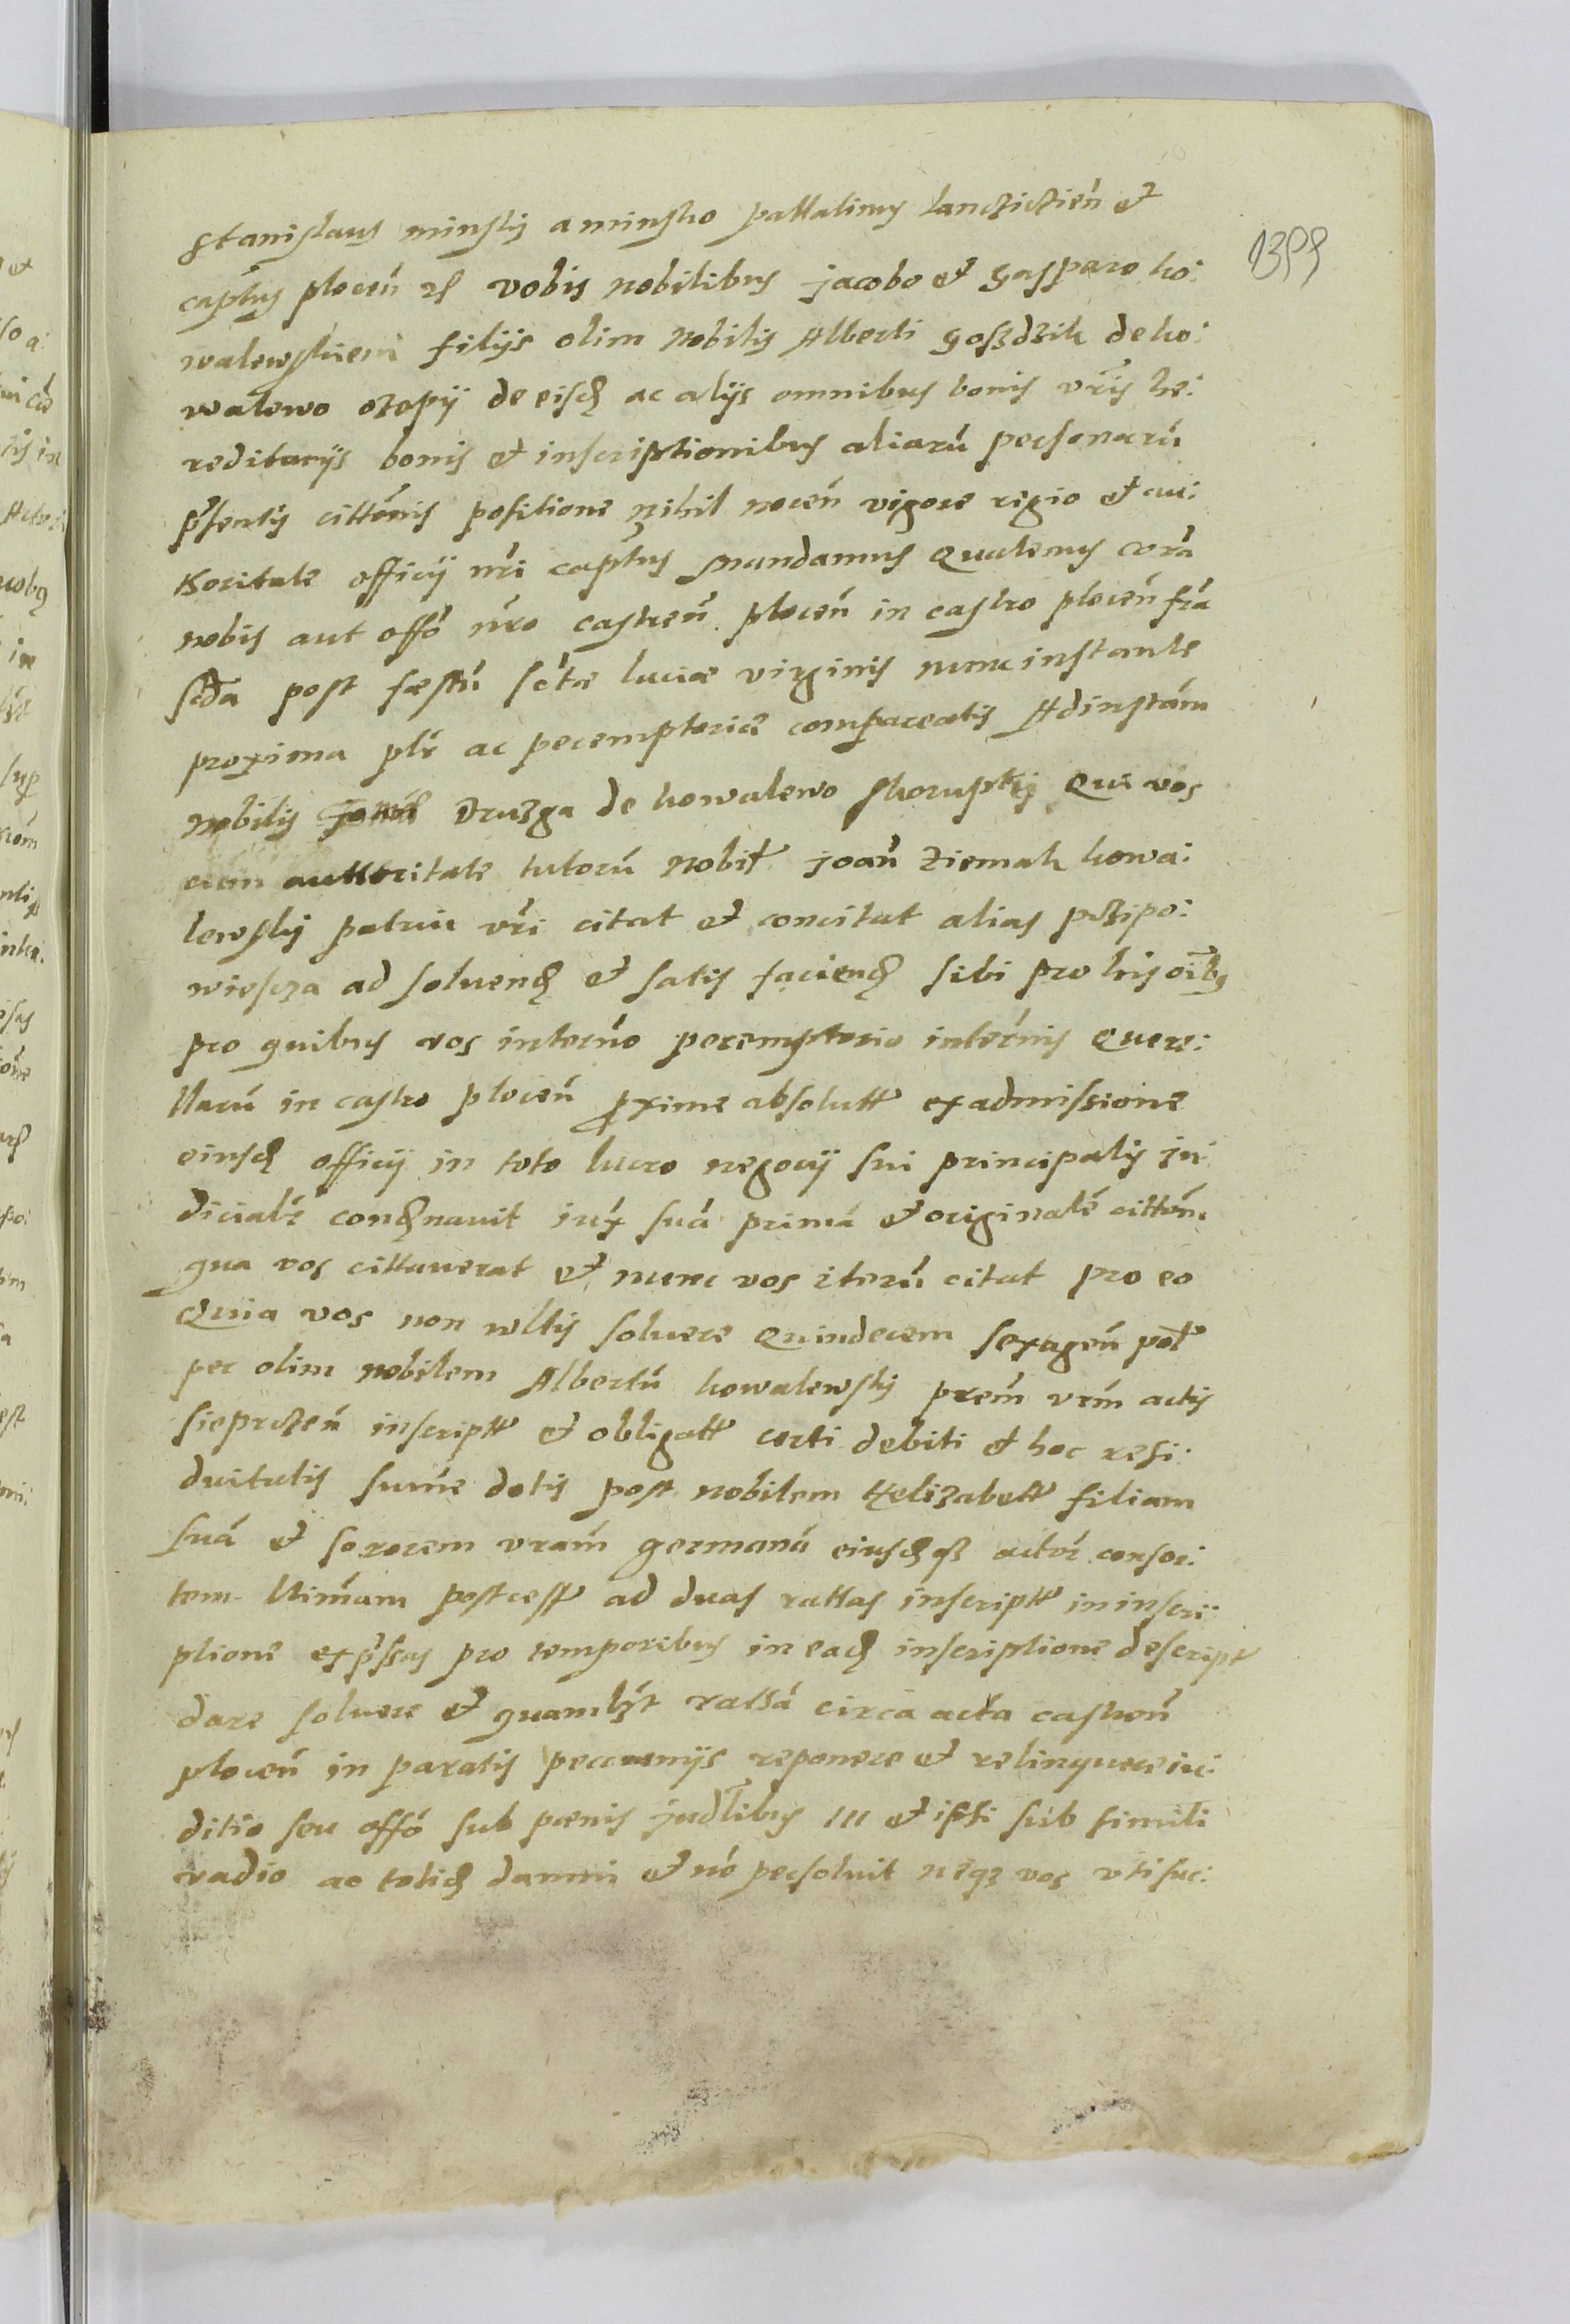 Stanislaus minsky a minsko pallatinus lancziczien̄ et
1399
captus plocen̄ rc vobis nobilibus jacobo et gasparo ko:
walewskiem filijs olim nobilis Alberti goszdzik de ko:
walewo ozepij de eisdē ac alijs omnibus bonis vr̄is he:
reditarijs bonis et inscriptionibus aliarū personarū
p̄sentis cittōnis positione nihil nocen̄ vigore regio et auc:
thoritate officij nr̄i captus mandamus quatenus corā
nobis aut offō nr̄o castren̄ plocen̄ in castro plocen̄ fr̄a
scd̄a post fæstū sc̄tæ luciæ virginis nunc instante
proxima plr̄ ac peremptorie compareatis Ad instām
nobilis Druzga de kowalewo skorupky Qui vos
cum authoritate tutorū nobil̄ joan̄ ziemak kowa:
lewsky patrui vr̄i citat et concitat alias przipo:
wiescza ad soluend̄ et satis faciend̄ sibi pro his oībus
pro quibus vos in terno peremptorio in ternis quere:
llarū in castro plocen̄ proxime absolutt ex admissione
eiusd̄ officij in toto lucro negocij sui principalis iu
dicialr̄ cond̄nauit iux suā primā et originalē cittōn̄
qua vos cittauerat et nunc vos iterū citat pro eo
Quia vos non vultis soluere Quindecem sexagen̄ pol
per olim nobilem Albertū kowalewsky prem̄ vrm̄ actis
sieprczen̄ inscriptt et obligatt certi debiti et hoc resi:
duitatis sum̄e dotis post nobilem Helizabett filiam
suā et sororem vram̄ germanā eiusd̄q3 actor̄ consor:
tem Vtimam postcess ad duas rattas inscriptt in inscri:
ptione exp̄ssas pro temporibus in ead̄ inscriptione descript
dare soluere et quamlz̄t rattā circa acta castren̄
plocen̄ in paratis peccunijs reponere et relinquere iu:
ditio seu offō sub pænis judlībus III et ipsi sub simili
vadio ac totid̄ damni et nō persoluit neq3 vos vti suc: